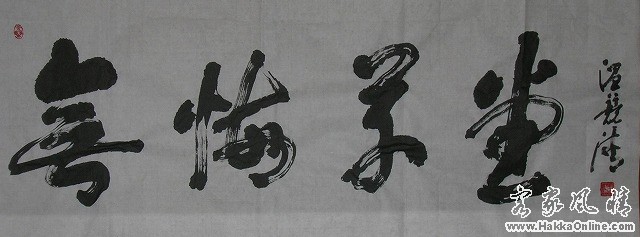 無悔草堂
客家风情
www.HakkaOnline.com